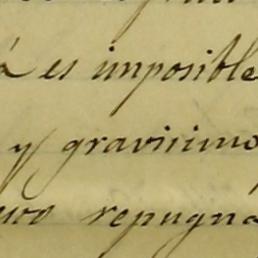 á es imposible
y gravisimo
repugna